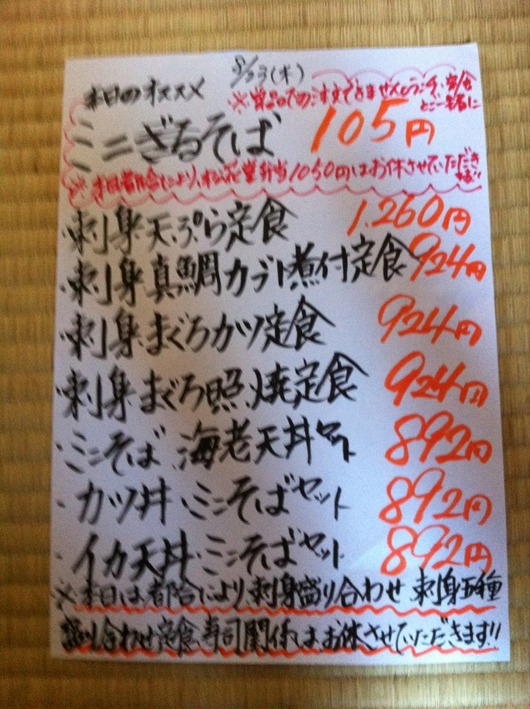 8/23(木)
本日のオススメ
※単品でのご注文できませんランチ、定食
とご一緒に
ミニざるそば 105円
※本日都合により、松花堂弁当1050円はお休させていただき
ます!!
・刺身天ぷら定食 1.260円
・刺身真鯛カブト煮付定食 924円
・刺身まぐろカツ定食 924円
・刺身まぐろ照り焼定食 924円
・ミニそば 海老天丼セット 892円
・カツ丼・ミニそばセット 892円
・イカ天丼・ミニそばセット 892円
※本日は都合により刺身盛り合わせ 刺身五種
盛り合わせ定食 寿司関係はお休させていただきます!!